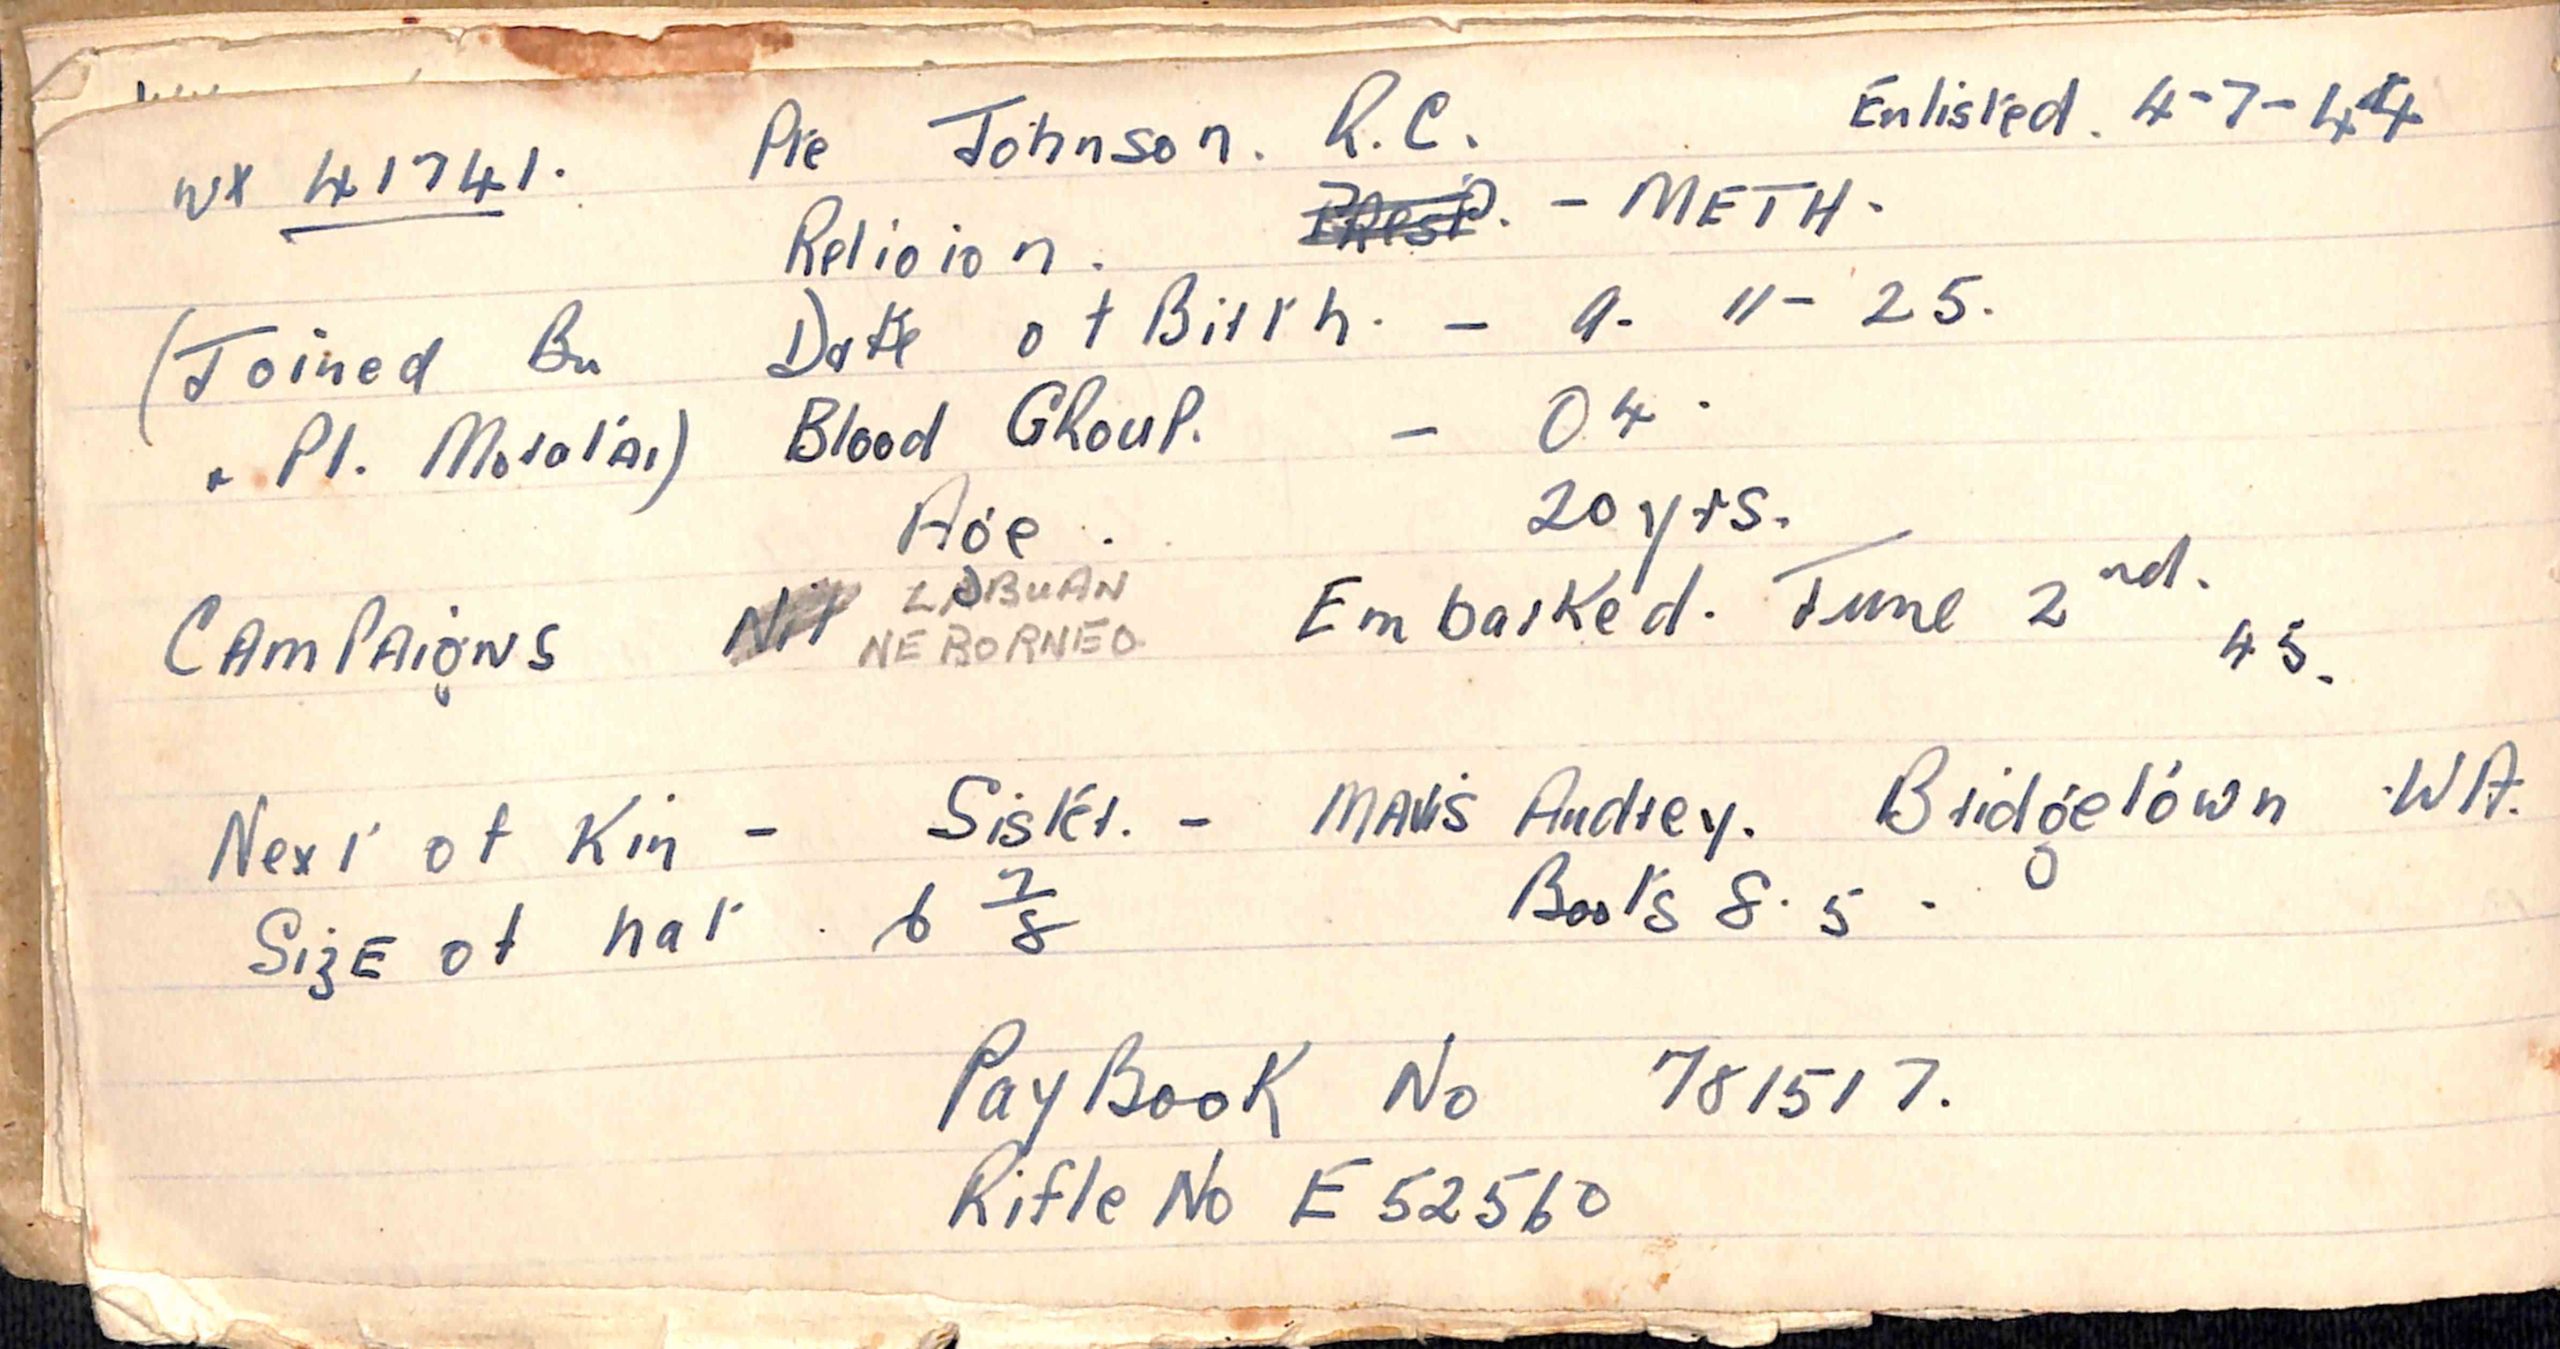 WX 41741. Pte Johnson. R.C. Enlisted. 4-7-44
Religion. Presb. - METH.
(Joined Bn Date of Birth. - 9. 11- 25.
& Pl. Morotai) Blood GRouP. - O 4.
Age. 20 yrs.
CAMPAigNS Nil LABUAN Embarked. June 2nd. 45.
NE BORNEO
Next of Kin - Sister. - MAVIS Audrey. Bridgetown W A.
SizE of hat. 6 7/8 Boots 8. 5.
Pay BooK No 781517.
Rifle No E 52560